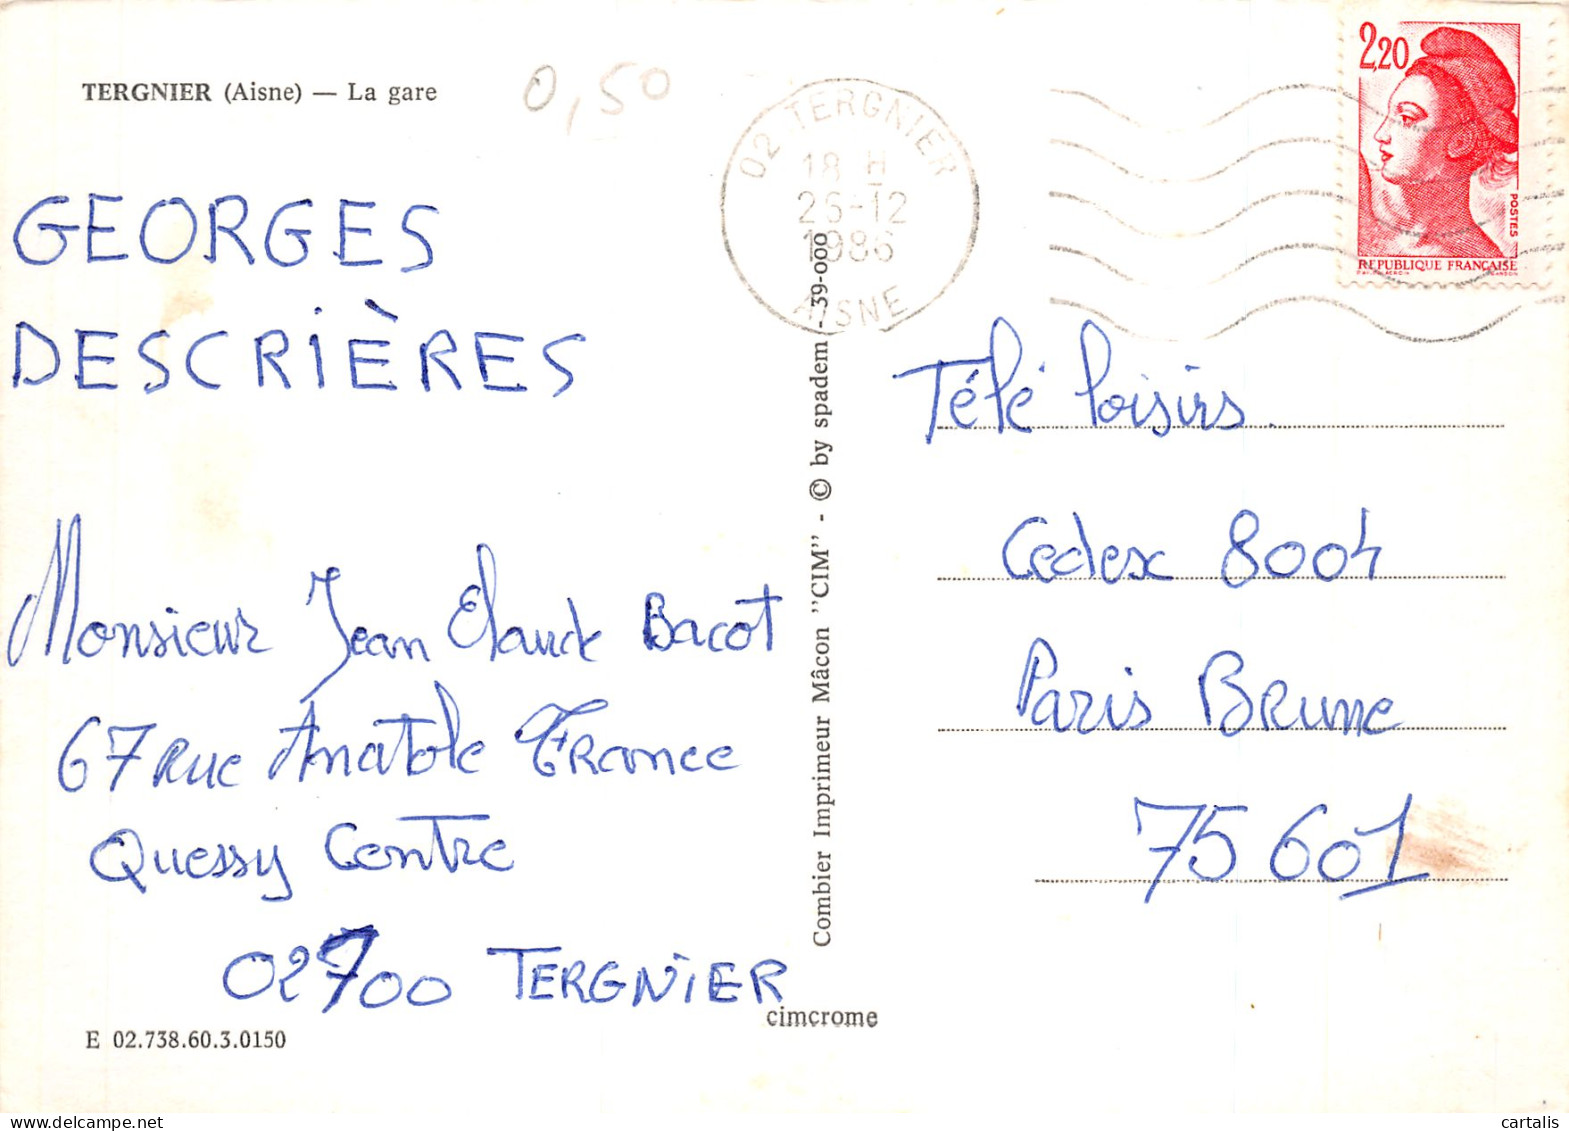 TERGNIER (Aisne) — La gare
0,50
GEORGES
DESCRIÈRES
Monsieur Jean Claude Bacot
67 Rue Anatole France
Quessy Centre
02700 TERGNIER
E 02.738.60.3.0150
Combier Imprimeur Mâcon "CIM" - © by spadem - 39-000
cimcrome
02 TERGNIER
18 H
26-12
1986
AISNE
2,20
POSTES
REPUBLIQUE FRANÇAISE
Télé loisirs
Cedex 8004
Paris Brune
75601
cartalis